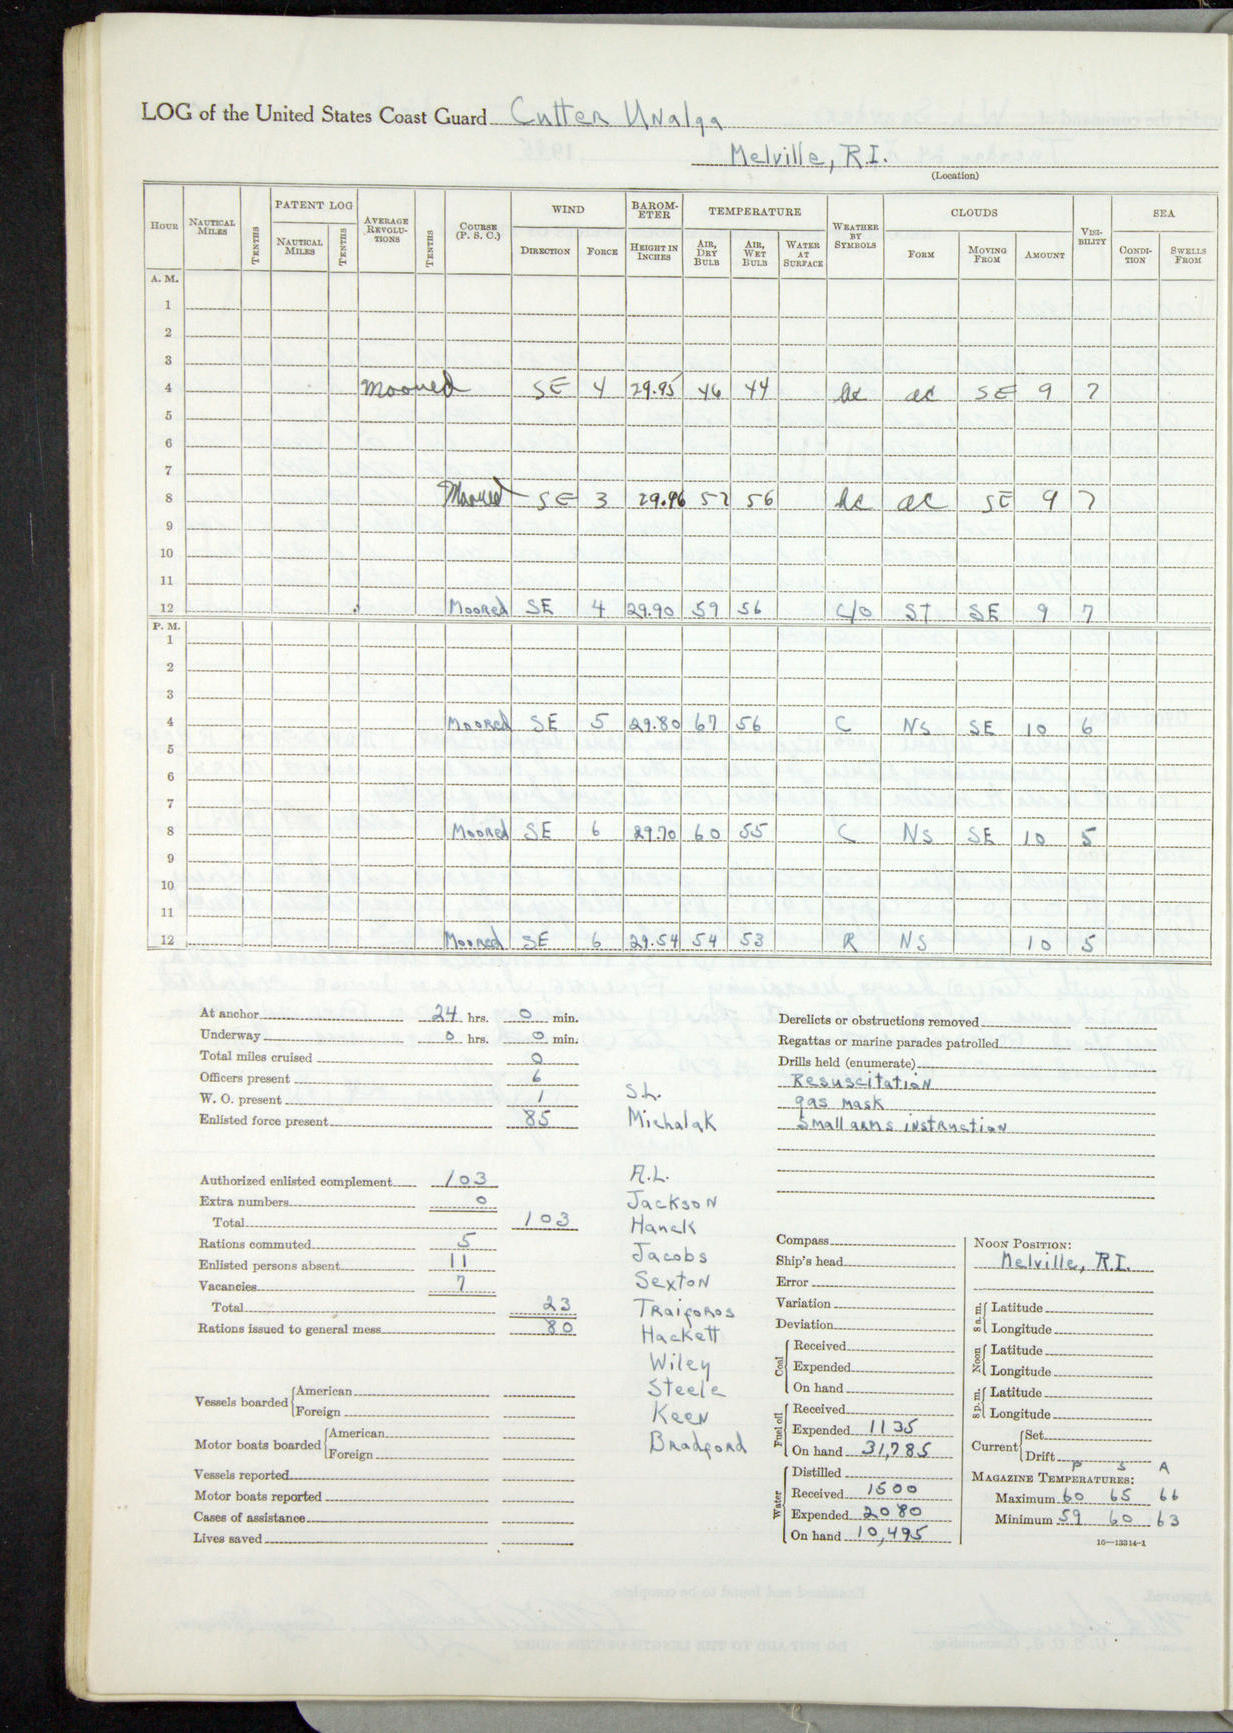 LOG of the United States Coast Guard Cutter Unalga
Melville, R.I.
(Location)
HOUR NAUTICAL MILES TENTHS PATENT LOG NAUTICAL MILES TENTHS AVERAGE REVOLUTIONS TENTHS COURSE (P. S. C.) WIND DIRECTION FORCE BAROMETER HEIGHT IN INCHES TEMPERATURE AIR, DRY BULB AIR, WET BULB WATER AT SURFACE WEATHER BY SYMBOLS CLOUDS FORM MOVING FROM AMOUNT VISIBILITY SEA CONDITION SWELLS FROM
A. M.
1
2
3
4 Moored SE 4 29.95 46 44 bc ac SE 9 7
5
6
7
8 Moored SE 3 29.96 57 56 bc ac SE 9 7
9
10
11
12 Moored SE 4 29.90 59 56 c/o ST SE 9 7
P. M.
1
2
3
4 Moored SE 5 29.80 67 56 C NS SE 10 6
5
6
7
8 Moored SE 6 29.70 60 55 C NS SE 10 5
9
10
11
12 Moored SE 6 29.54 54 53 R NS 10 5
At anchor 24 hrs. 0 min.
Underway 0 hrs. 0 min.
Total miles cruised 0
Officers present 6
W. O. present 1
Enlisted force present 85
Authorized enlisted complement 103
Extra numbers 0
Total 103
Rations commuted 5
Enlisted persons absent 11
Vacancies 7
Total 23
Rations issued to general mess 80
Vessels boarded American
Foreign
Motor boats boarded American
Foreign
Vessels reported
Motor boats reported
Cases of assistance
Lives saved
S.L.
Michalak
A.L.
Jackson
Hanek
Jacobs
Sexton
Traiforos
Hackett
Wiley
Steele
Keen
Bradford
Derelicts or obstructions removed
Regattas or marine parades patrolled
Drills held (enumerate)
Resuscitation
gas mask
Small arms instruction
Compass
Ship's head
Error
Variation
Deviation
Coal Received
Expended
On hand
Fuel oil Received
Expended 1135
On hand 31,785
Water Distilled
Received 1500
Expended 2080
On hand 10,495
NOON POSITION:
Melville, R.I.
8 a.m. Latitude
Longitude
Noon Latitude
Longitude
8 p.m. Latitude
Longitude
Current Set
Drift
P S A
MAGAZINE TEMPERATURES:
Maximum 60 65 66
Minimum 59 60 63
16—13314-1